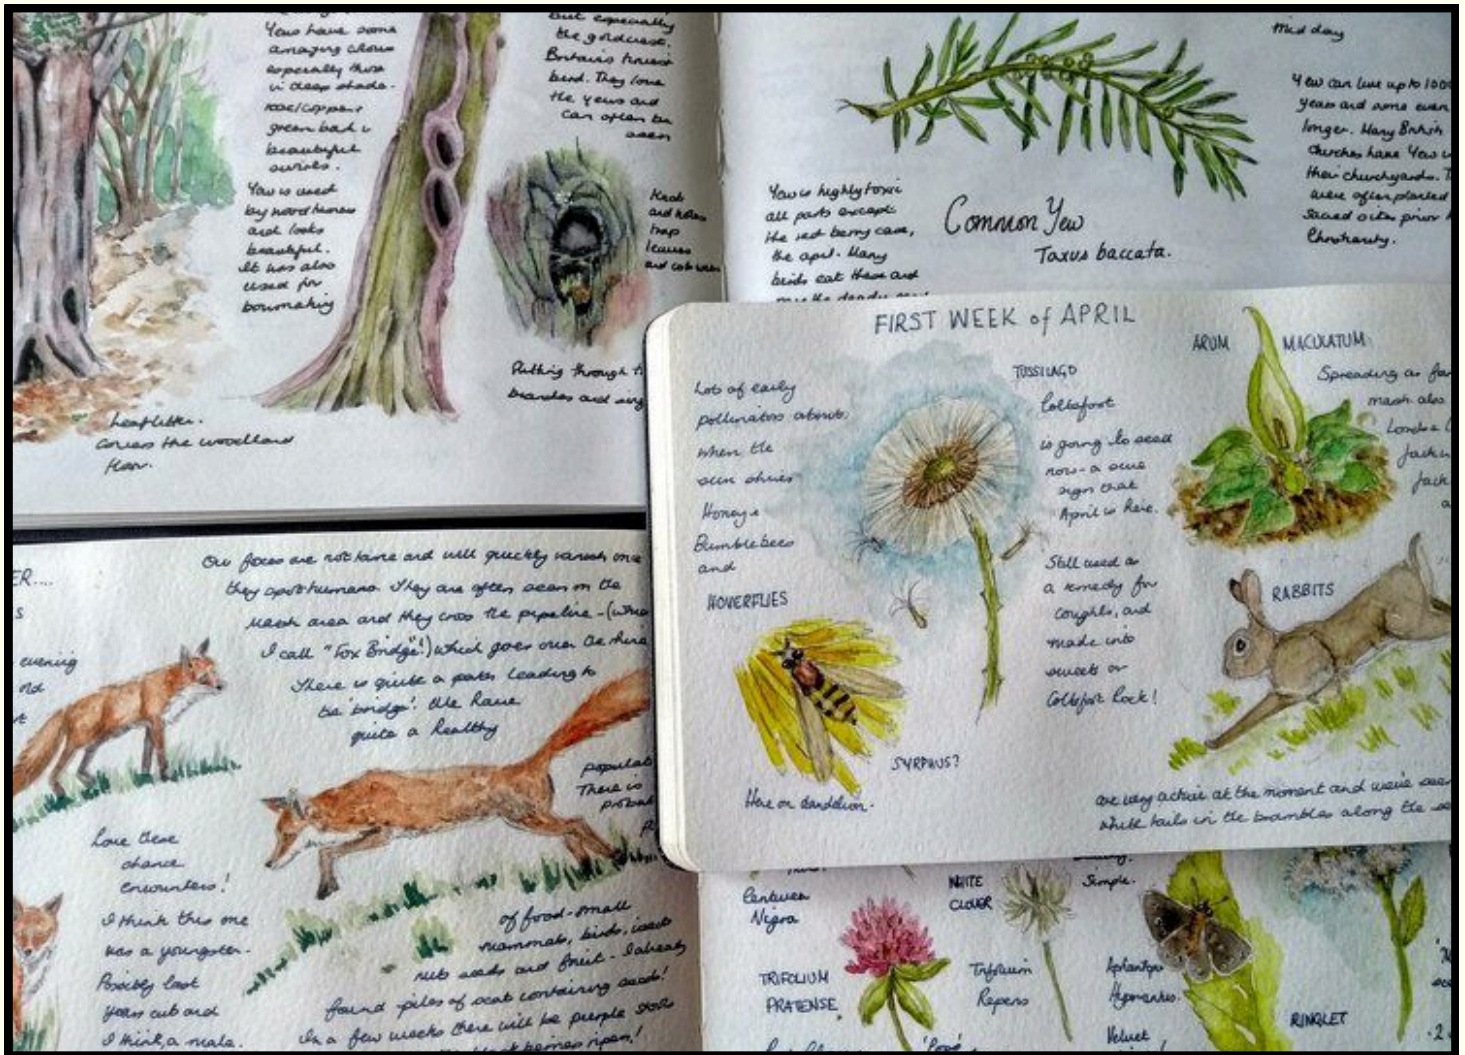 Yews have some
amazing colours
especially those
in deep shade.
rose/copper
green bark in
beautiful
swirls.
Yew is used
by wood turners
and looks
beautiful.
It was also
used for
bowmaking
but especially
the goldcrest.
Britain's tiniest
bird. They love
the yews and
can often be
seen
Knots
and holes
trap
leaves
and cobwebs
Leaflitter.
Covers the woodland
floor.
branches and
Mid day
Yew can live up to 100
years and some even
longer. Many British
churches have Yew in
their churchyards. T
were often planted
sacred sites prior
Christianity.
Yew is highly toxic
all parts except
the red berry case,
the aril. Many
birds eat these and
Common Yew
Taxus baccata.
FIRST WEEK of APRIL
Lots of early
pollinators about
when the
sun shines
Honey &
Bumblebees
and
HOVERFLIES
SYRPHUS?
Here on dandelion.
TUSSILAGO
Coltsfoot
is going to seed
now - a sure
sign that
April is here.
Still used as
a remedy for
coughs, and
made into
sweets or
Coltsfoot Rock!
ARUM MACULATUM
Spreading as far
marsh also
Lords &
Jack in
Jack
RABBITS
are very active at the moment and we've seen
white tails in the brambles along the
ER....
S
evening
Our foxes are not tame and will quickly vanish once
they spot humans. They are often seen on the
marsh area and they cross the pipeline - (which
I call "Fox Bridge"!) which goes over the
There is quite a path leading to
the bridge! We have
quite a healthy
populat
There is
probab
Love these
chance
encounters!
I think this one
was a youngster.
Possibly last
years cub and
I think, a male.
of food - small
mammals, birds, insects
nuts seeds and fruit - I already
found piles of scat containing seeds!
In a few weeks there will be purple
blackberries ripen!
Centurea
Nigra
WHITE
CLOVER
Simple.
TRIFOLIUM
PRATENSE
Trifolium
Repens
Aphantopus
Hyperantus.
Velvet
RINGLET